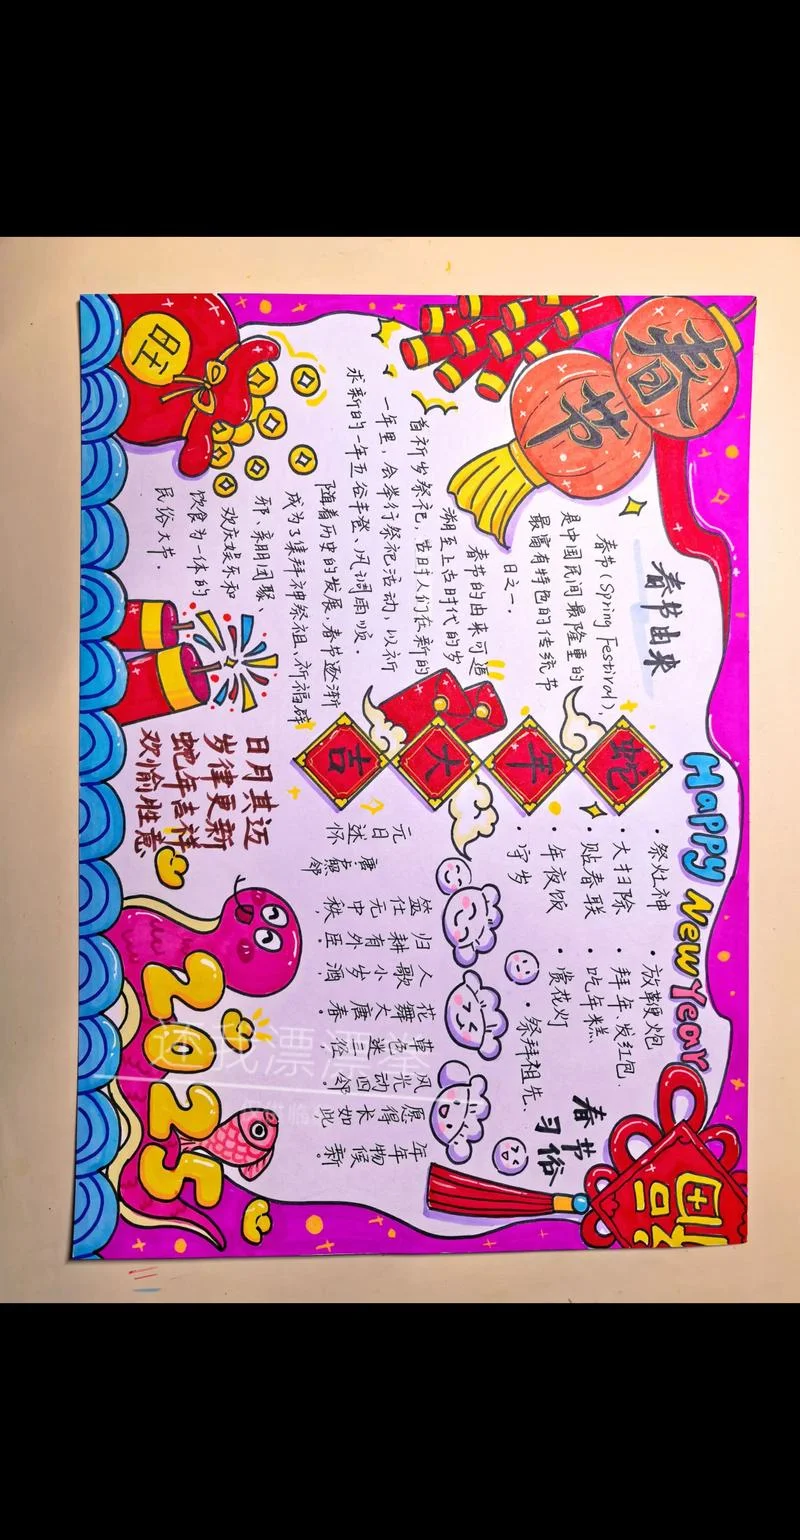 春节
Happy New Year
福
春节由来
春节(Spring Festival),
是中国民间最隆重的
最富有特色的传统节
日之一。
春节的由来可追
溯至上古时代的岁
首祈岁祭祀。古时人们在新的
一年里,会举行祭祀活动,以祈
求新的一年五谷丰登、风调雨顺.
随着历史的发展,春节逐渐
成为了集拜神祭祖、祈福辟
邪、亲朋团聚、
欢庆娱乐和
饮食为一体的
民俗大节.
旺
蛇
年
大
吉
春节
习俗
·祭灶神 ·放鞭炮
·大扫除 ·拜年、发红包.
·贴春联 ·吃年糕
·年夜饭 ·赏花灯
·守岁 ·祭拜祖先、
元日述怀
唐 卢照邻
筮仕无中秩,
归耕有外臣。
人歌小岁酒,
花舞大唐春。
草色迷三径,
风光动四邻。
愿得长如此,
年年物候新。
日月其迈
岁律更新
蛇年吉祥
欢愉胜意
2025
还我漂漂拳